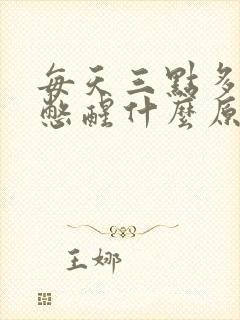 每天三點多
憋醒什麼原
王娜